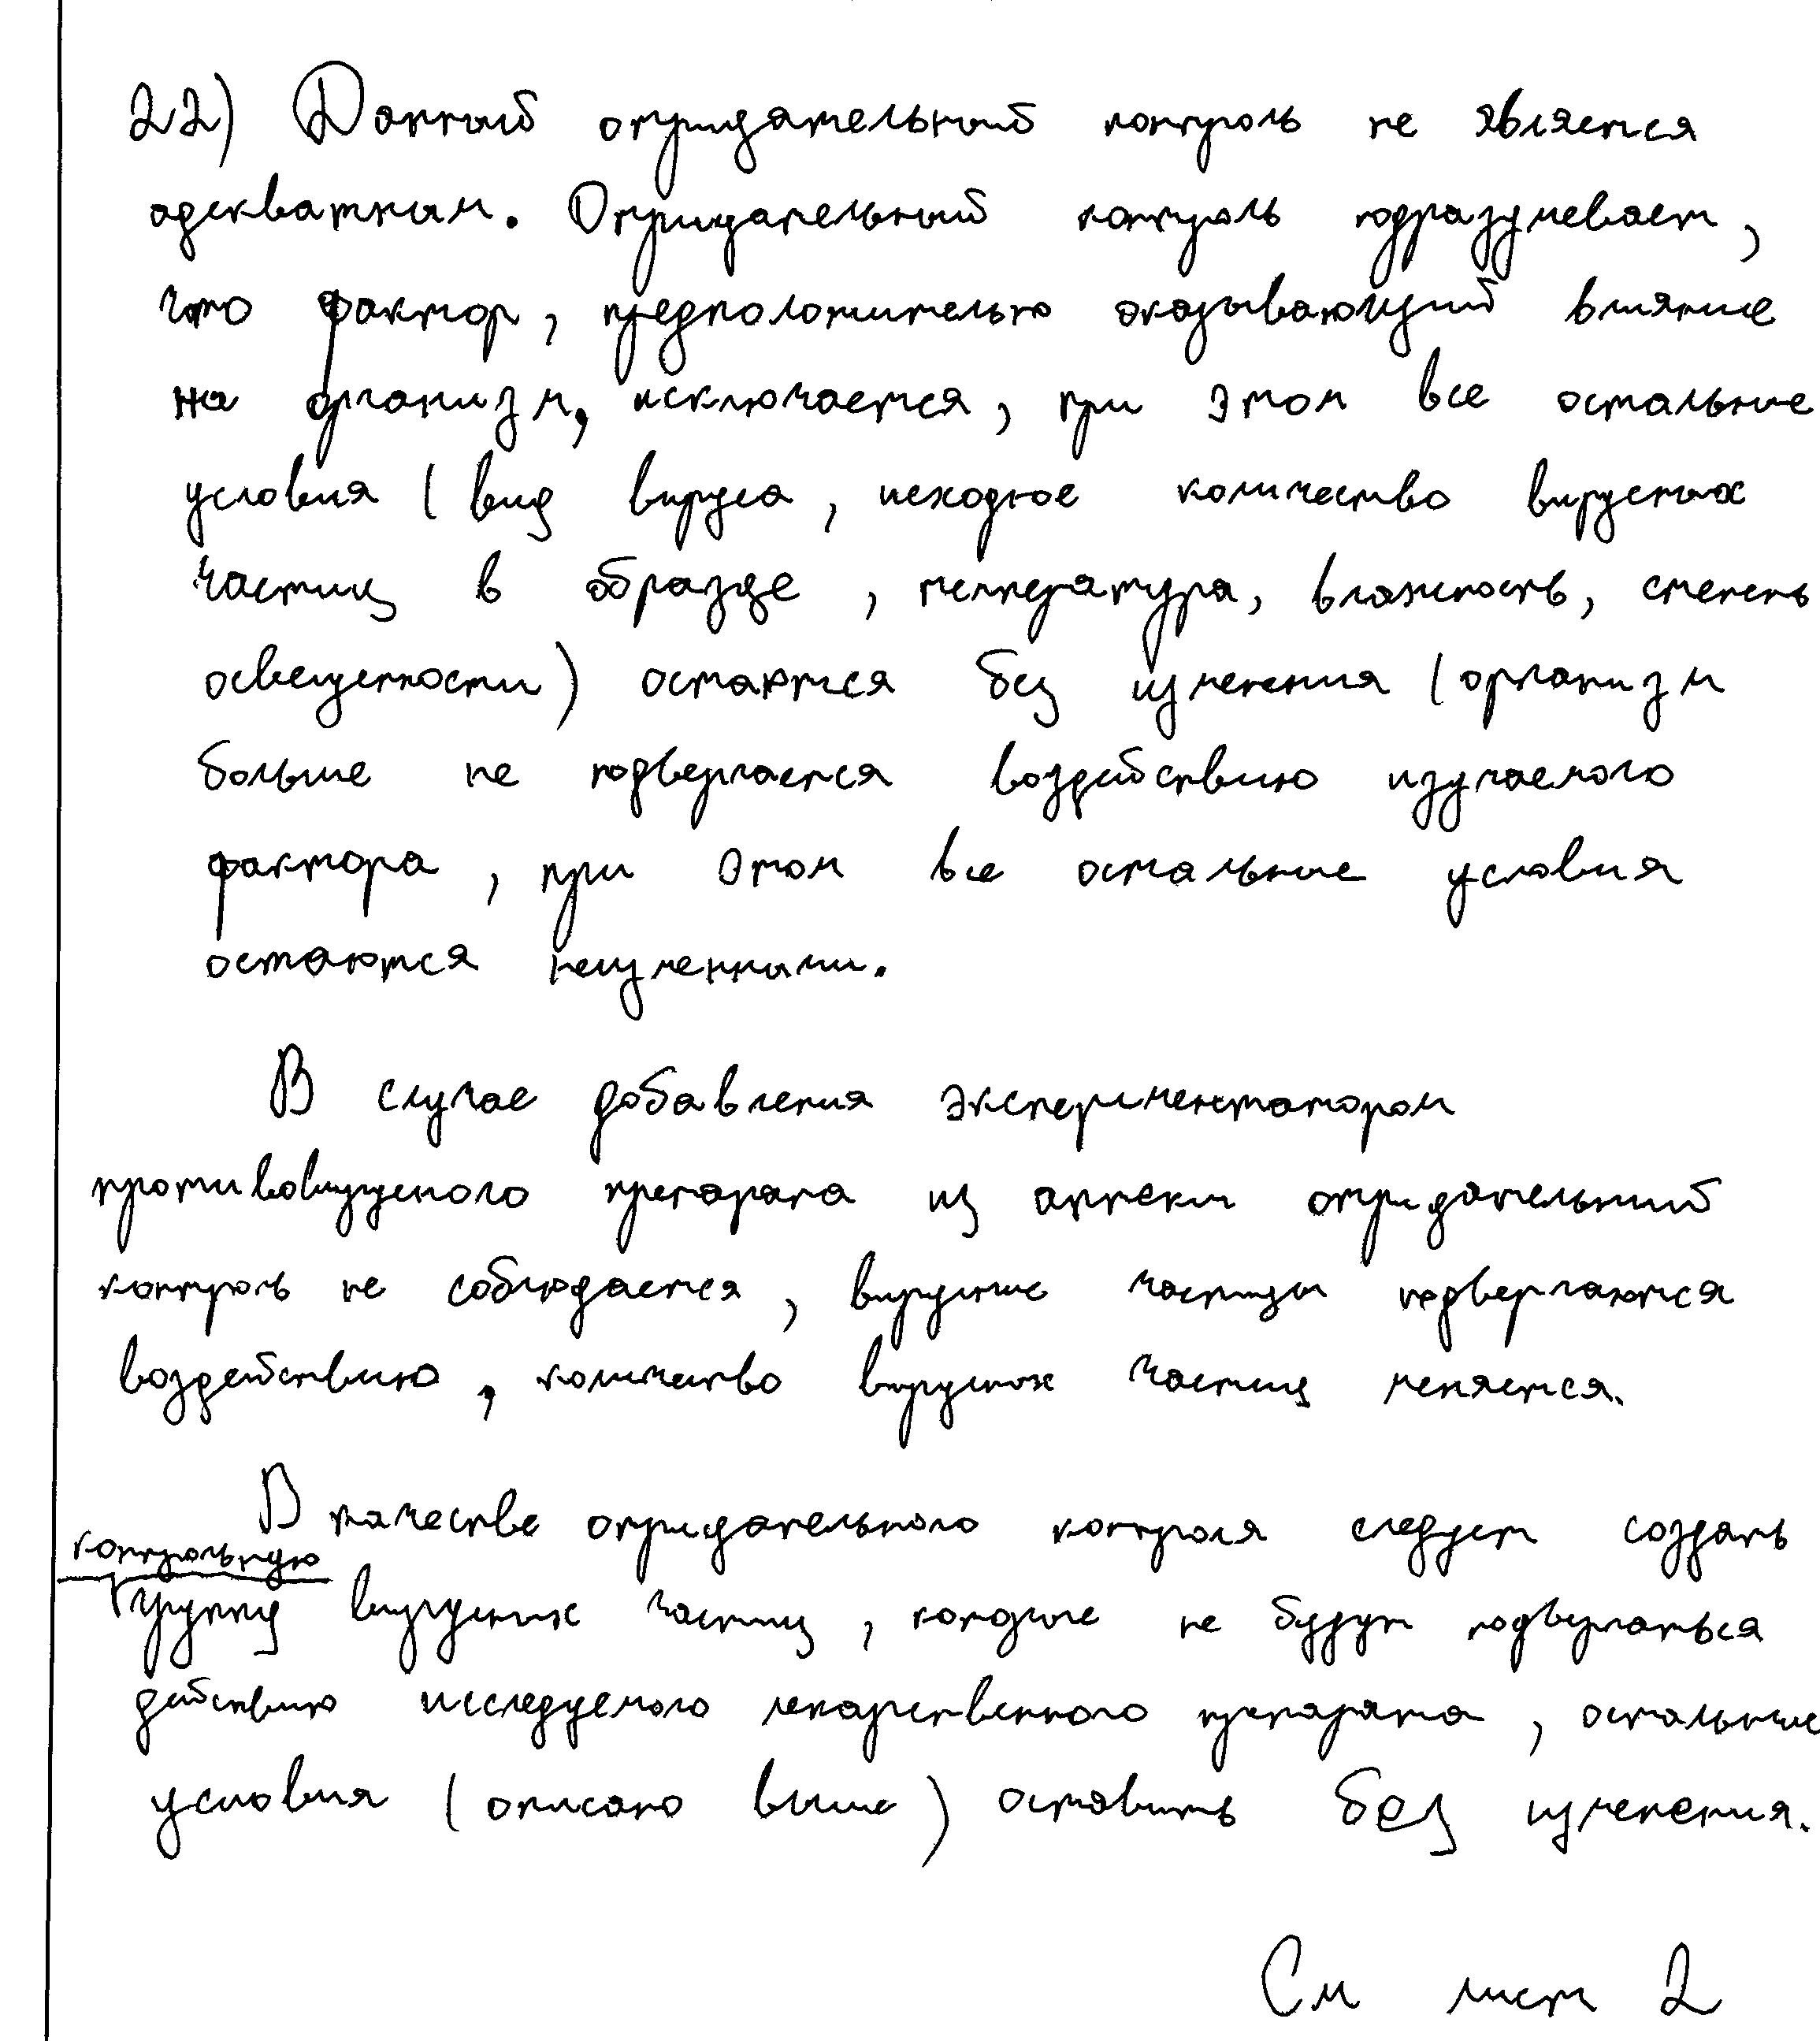 22) Данный отрицательный контроль не является
адекватным. Отрицательный контроль подразумевает,
что фактор, предположительно оказывающий влияние
на организм, исключается, при этом все остальные
условия (вид вируса, исходное количество вирусных
частиц в образце, температура, влажность, степень
освещенности) остаются без изменения (организм
больше не подвергается воздействию изучаемого
фактора, при этом все остальные условия
остаются неизменными.
В случае добавления экспериментатором
противовирусного препарата из аптеки отрицательный
контроль не соблюдается, вирусные частицы подвергаются
воздействию, количество вирусных частиц меняется.
В качестве отрицательного контроля следует создать
контрольную
группу вирусных частиц, которые не будут подвергаться
действию исследуемого лекарственного препарата, остальные
условия (описано выше) оставить без изменения.
См лист 2